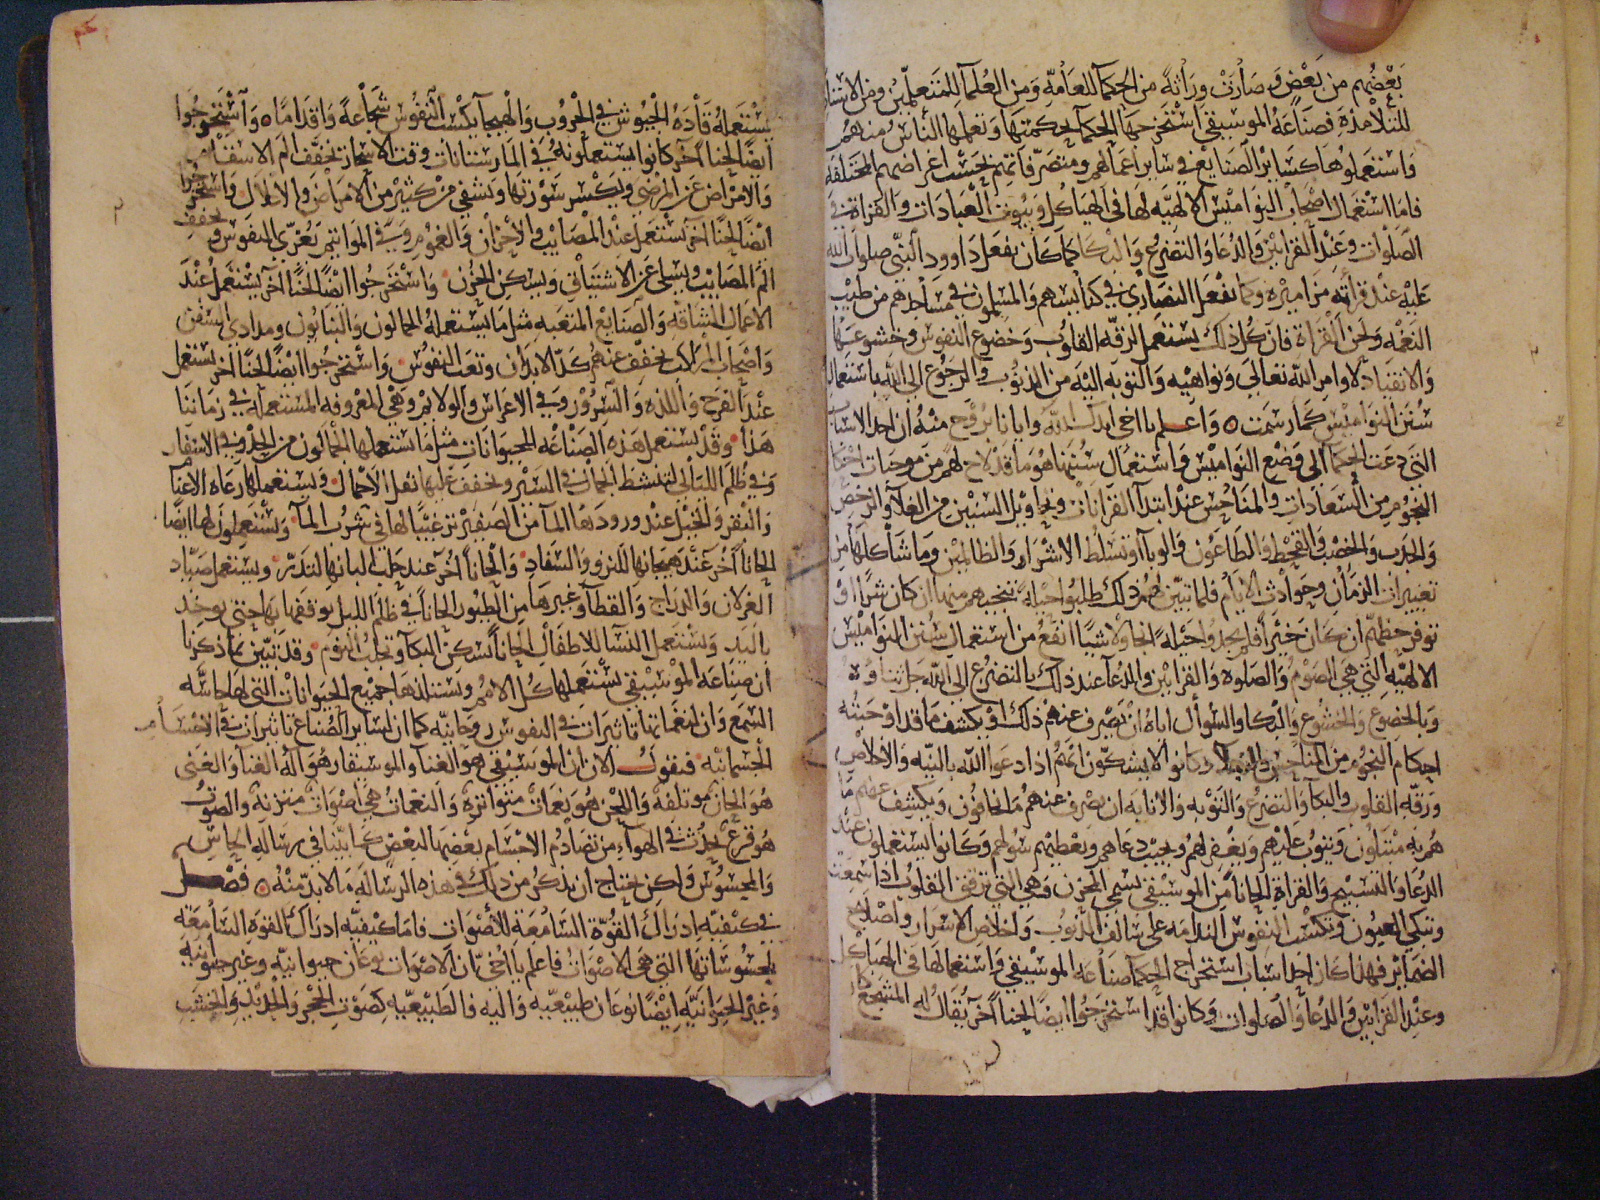 بعضهم من بعض وصارت وراثة من الحكما للعامة ومن العلما للمتعلمين ومن الاستاذ
للتلامذة فصناعة الموسيقى استخرجها الحكما بحكمتها وتعلمها الناس منهم
واستعملوها كساير الصنايع في ساير اعمالهم ومتصرفاتهم بحسب اغراضهم المختلفة
فاما استعمال اصحاب النواميس الالهيه لها في الهياكل وبيوت العبادات والقراة في
الصلوات وعند القرابين والدعا والتضرع والبكا كما كان يفعل داوود النبي صلوات الله
عليه عند قراته مزاميره وكما تفعل النصارى في كنايسهم والمسلمون في مساجدهم من طيب
النغمه ولحن القراة فان كل ذلك يستعمل لرقه القلوب وخضوع النفوس وخشوعها
والانقياد لاوامر الله تعالى ونواهيه والتوبه اليه من الذنوب والرجوع الى الله باستعمال
سنن النواميس كما رسمت واعلم يا اخي ايدك الله وايانا بروح منه ان احد الاسباب
التي دعت الحكما الى وضع النواميس واستعمال سننها هو ما قد لاح لهم من موجبات احكام
النجوم من السعادات والمناحس عند ابتدا القرانات وتحاويل السنين من الغلا والرخص
والجدب والخصب والقحط والطاعون والوبا او تسلط الاشرار والظالمين وما شاكلها من
تغييرات الزمان وحوادث الايام فلما تبين لهم ذلك طلبوا حيلة تنجيهم منها ان كان شرا او
توفر حظهم ان كان خيرا فلم يجدوا حيلة انجا ولا شيا انفع من استعمال سنن النواميس
الالهيه التي هي الصوم والصلوة والقرابين والدعا عند ذلك بالتضرع الى الله جل ثناوه
وبالخضوع والخشوع والبكا والسوال اياه ان يصرف عنهم ذلك او يكشف ما قد اوجبته
احكام النجوم من المناحس والبلا وكانوا لا يشكون انهم اذا دعوا الله بالنيه والاخلاص
ورقه القلوب والبكا والتضرع والتوبه والانابه ان يصرف عنهم ما يخافون ويكشف عنهم ما
هم به مبتلون ويتوب عليهم ويغفر لهم ويجيب دعاهم ويعطيهم سولهم وكانوا يستعملون عند
الدعا والتسبيح والقراة الحانا من الموسيقى يسمى المحزن وهي التي ترقق القلوب اذا سمعت
وتبكي العيون وتكسب النفوس الندامه على سالف الذنوب واخلاص الاسرار واصلاح
الضماير فهذا كان احد اسباب استخراج الحكما صناعه الموسيقى واستعمالها في الهياكل
وعند القرابين والدعا والصلوات وكانوا قد استخرجوا ايضا لحنا اخر يقال له المشجع كان
يستعمله قادة الجيوش في الحروب والهيجا يكسب النفوس شجاعة واقداما واستخرجوا
ايضا لحنا اخر كانوا يستعملونه في المارستانات وقت الاسحار تخفف الم الاسقام
والامراض عن المرضى ويكسر سورتها ويشفي من كثير من الامراض والاعلال واستخرجوا
ايضا لحنا اخر يستعمل عند المصايب والاحزان والغموم وفي المواتم يعزي النفوس ويخفف
الم المصايب ويسلي عن الاشتياق ويسكن الحزن واستخرجوا ايضا لحنا اخر يستعمل عند
الاعمال الشاقه والصنايع المتعبه مثل ما يستعمله الحمالون والبناون وملاحي السفن
واصحاب المراكب تخفف عنهم كد الابدان وتعب النفوس واستخرجوا ايضا لحنا اخر يستعمل
عند الفرح واللذه والسرور وفي الاعراس والولايم وهي المعروفه المستعمله في زماننا
هذا وقد يستعمل هذه الصناعه للحيوانات مثل ما استعملها الجمالون من الحدو في الاسفار
وفي ظلم الليالي لتنشط الجمال في السير وتخفف عليها ثقل الاحمال ويستعملها رعاه الاغنام
والبقر والخيل عند ورودها الما من الصفير ترغيبا لها في شرب الما ويستعملون لها ايضا
الحانا اخر عند هيجانها للنزو والسفاد والحانا اخر عند حلب البانها لتدر ويستعمل صياد
الغزلان والدراج والقطا وغيرها من الطيور الحانا في ظلم الليل يوقفها بها حتى يوخذ
باليد ويستعمل النسا للاطفال الحانا تسكن البكا وتجلب النوم وقد تبين بما ذكرنا
ان صناعه الموسيقى يستعملها كل الامم ويستلذها جميع الحيوانات التي لها حاسه
السمع وان لنغماتها تاثيرات في النفوس روحانيه كما ان لساير الصناع تاثيرات في الاجسام
الجسمانيه فنقول الان ان الموسيقى هو الغنا والموسيقار هو آلة الغنا والغنى
هو الحان موتلفة واللحن هو نغمات متواترة والنغمات هي اصوات متزنة والصوت
هو قرع يحدث في الهواء من تصادم الاجسام بعضها لبعض كما بينا في رساله الحاس
والمحسوس ولكن يحتاج ان نذكر من ذلك في هذه الرسالة ما لا بد منه فصل
في كيفيه ادراك القوة السامعة للاصوات فاما كيفيه ادراك القوة السامعه
لمحسوساتها التي هي الاصوات فاعلم يا اخي ان الاصوات نوعان حيوانيه وغير حيوانيه
وغير الحيوانيه ايضا نوعان طبيعيه واليه فالطبيعيه كصوت الحجر والحديد والخشب